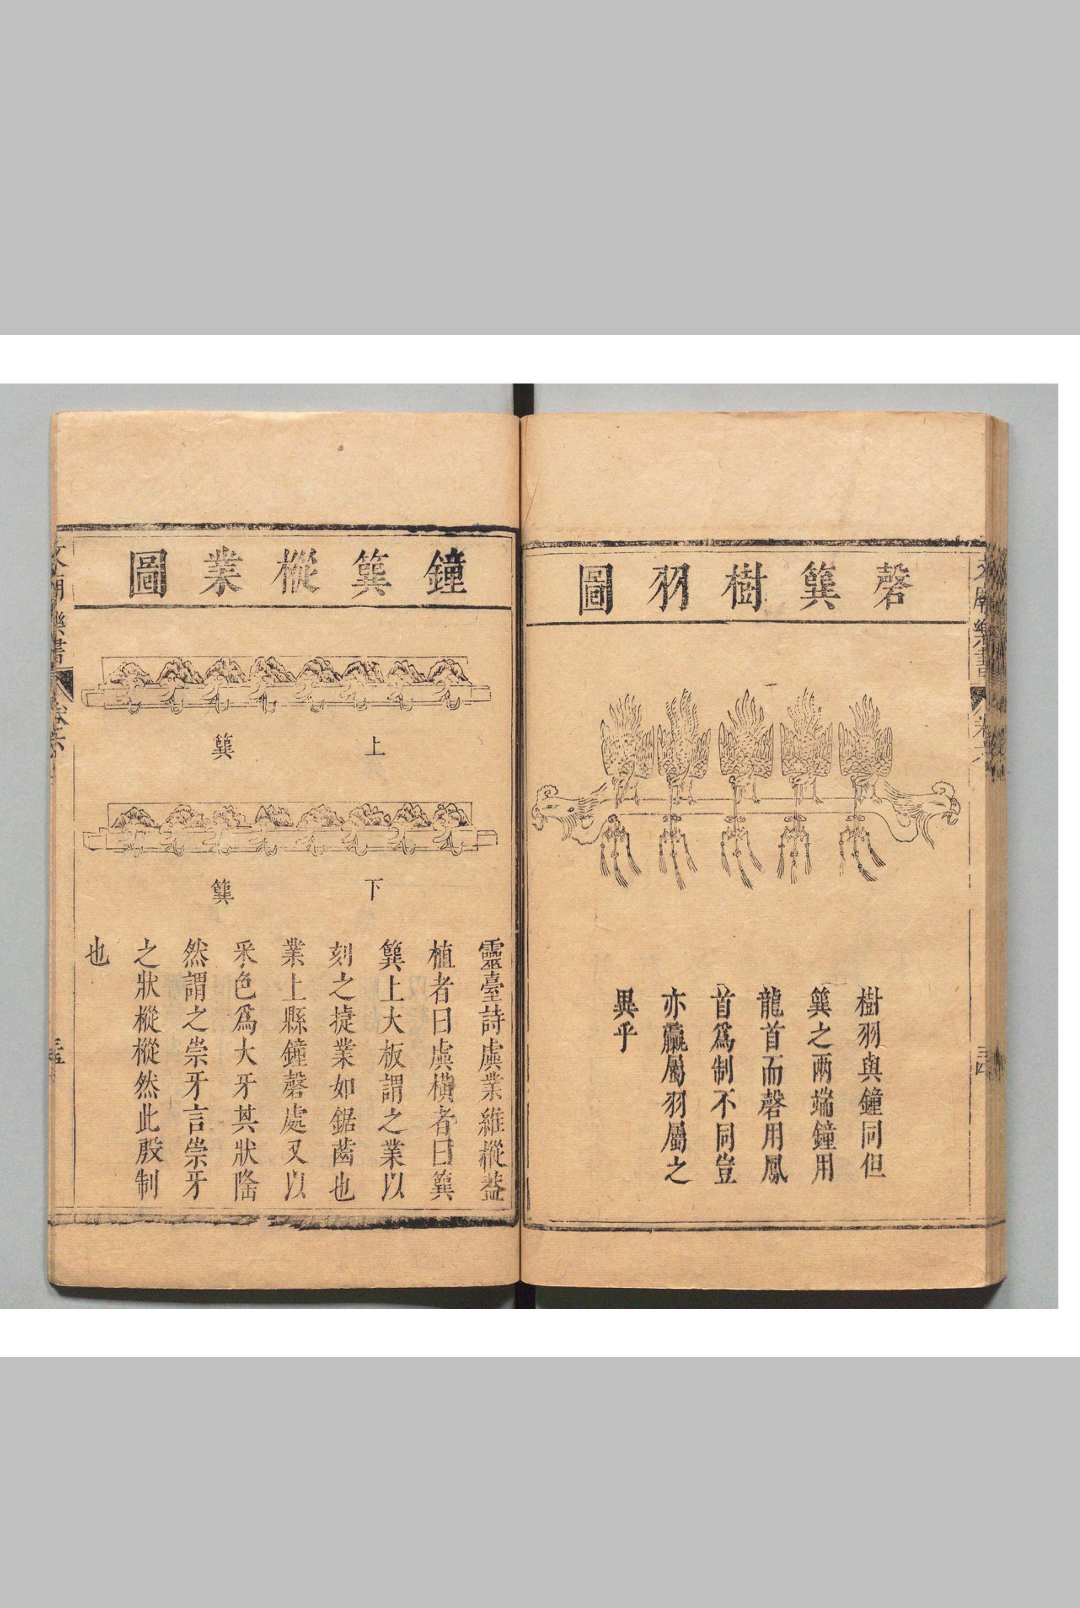 磬簨樹羽圖
樹羽與鐘同但
簨之兩端鐘用
龍首而磬用鳳
首爲制不同豈
亦臝屬羽屬之
異乎
鐘簨樅業圖
上簨
下簨
靈臺詩虡業維樅葢
植者曰虡橫者曰簨
簨上大板謂之業以
刻之捷業如鋸齒也
業上縣鐘磬處又以
采色爲大牙其狀隆
然謂之崇牙言崇牙
之狀樅樅然此殷制
也
文廟樂書
卷六
三十五